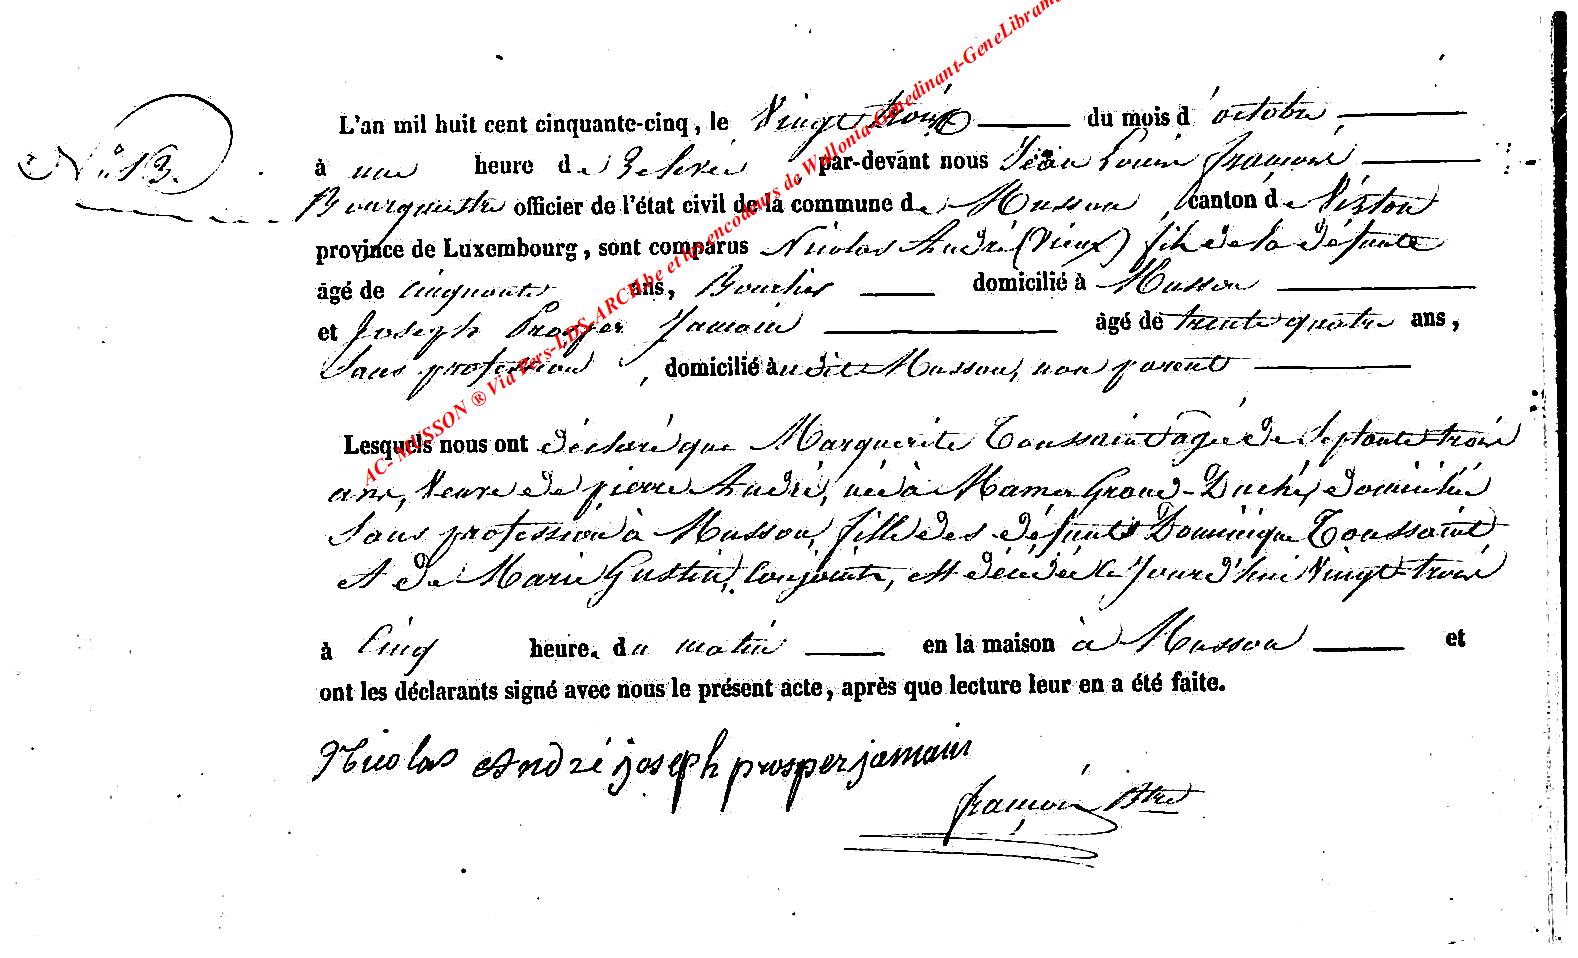 AC- MUSSON ® Via Pers-LDS-ARCH.be et les encodeurs de Wallonia-Genedinant-GeneLibramo
L'an mil huit cent cinquante-cinq, le Vingt trois du mois d'octobre
N° 13. à une heure de Relevée, par-devant nous Jean Louis françois
Bourgmestre officier de l'état civil de la commune de Musson, canton de Virton
province de Luxembourg, sont comparus Nicolas André (Vieux) fils de la défunte
âgé de cinquante ans, Bourlier domicilié à Musson
et Joseph Prosper Jamain âgé de trente quatre ans,
Sans profession, domicilié audit Musson, non parent
Lesquels nous ont déclaré que Marguerite Toussaint âgée de Septante trois
ans, Veuve de pierre André, née à Mamer Grand-Duché, domiciliée
Sans profession à Musson, fille des défunts Dominique Toussaint
et de Marie Gustin, Conjoints, est décédée le Jourd'hui Vingt-trois
à Cinq heure. du matin en la maison à Musson et
ont les déclarants signé avec nous le présent acte, après que lecture leur en a été faite.
Nicolas André joseph prosper jamain
françois Btre